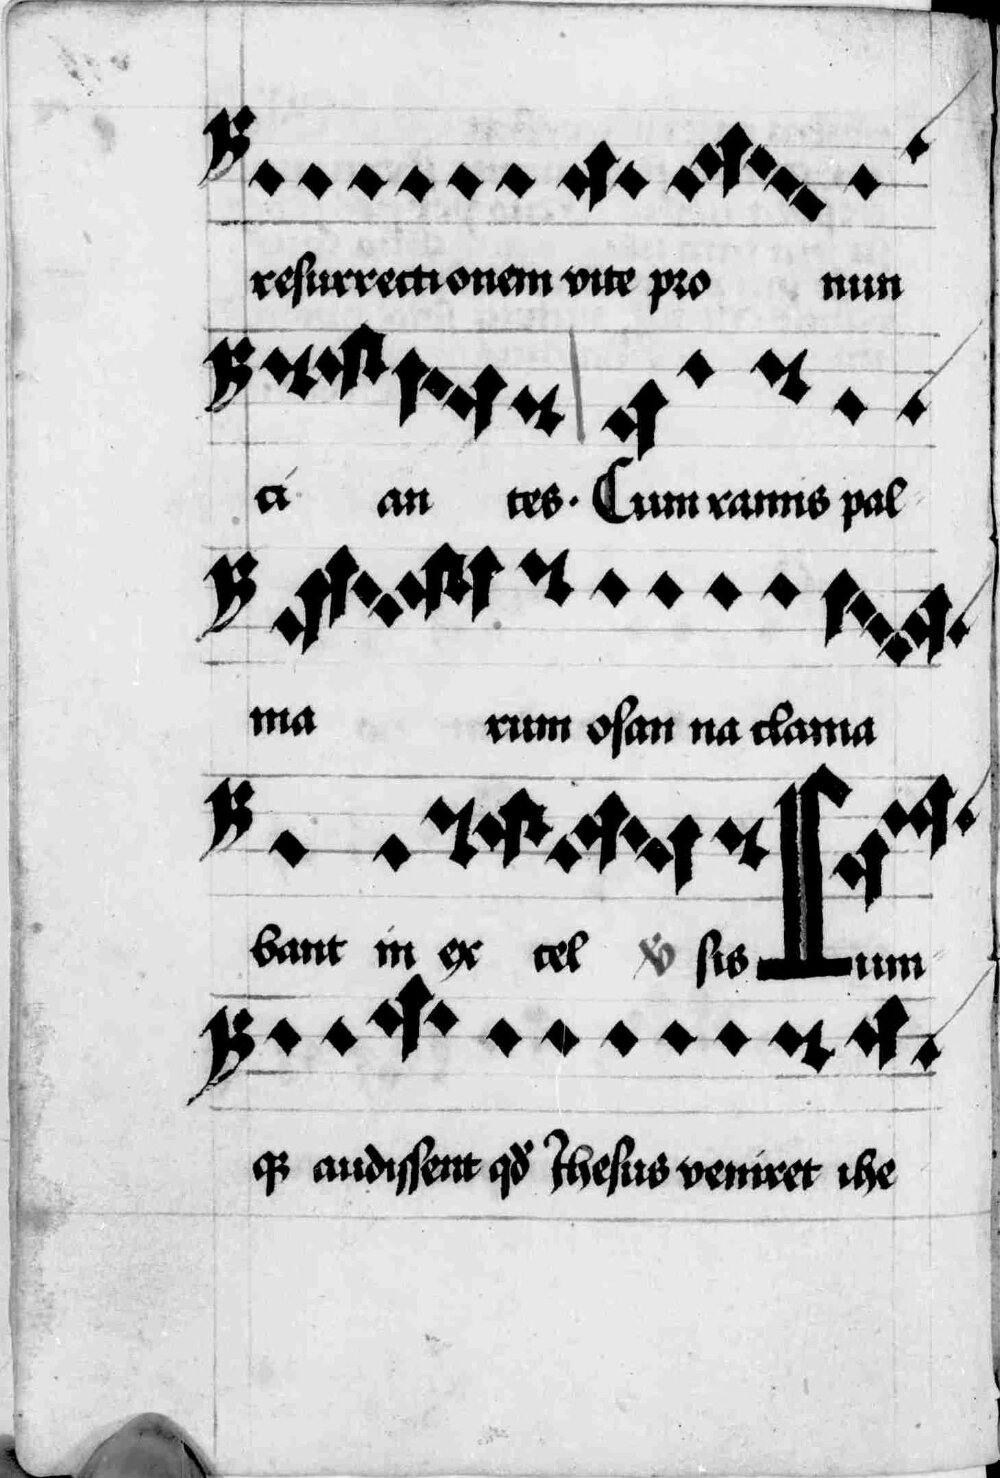 resurrectionem vite pro nun
ci an tes. Cum ramis pal
ma rum osan na clama
bant in ex cel ℣ sis Cum
qꝫ audissent qd̛ Ihesus veniret ihe